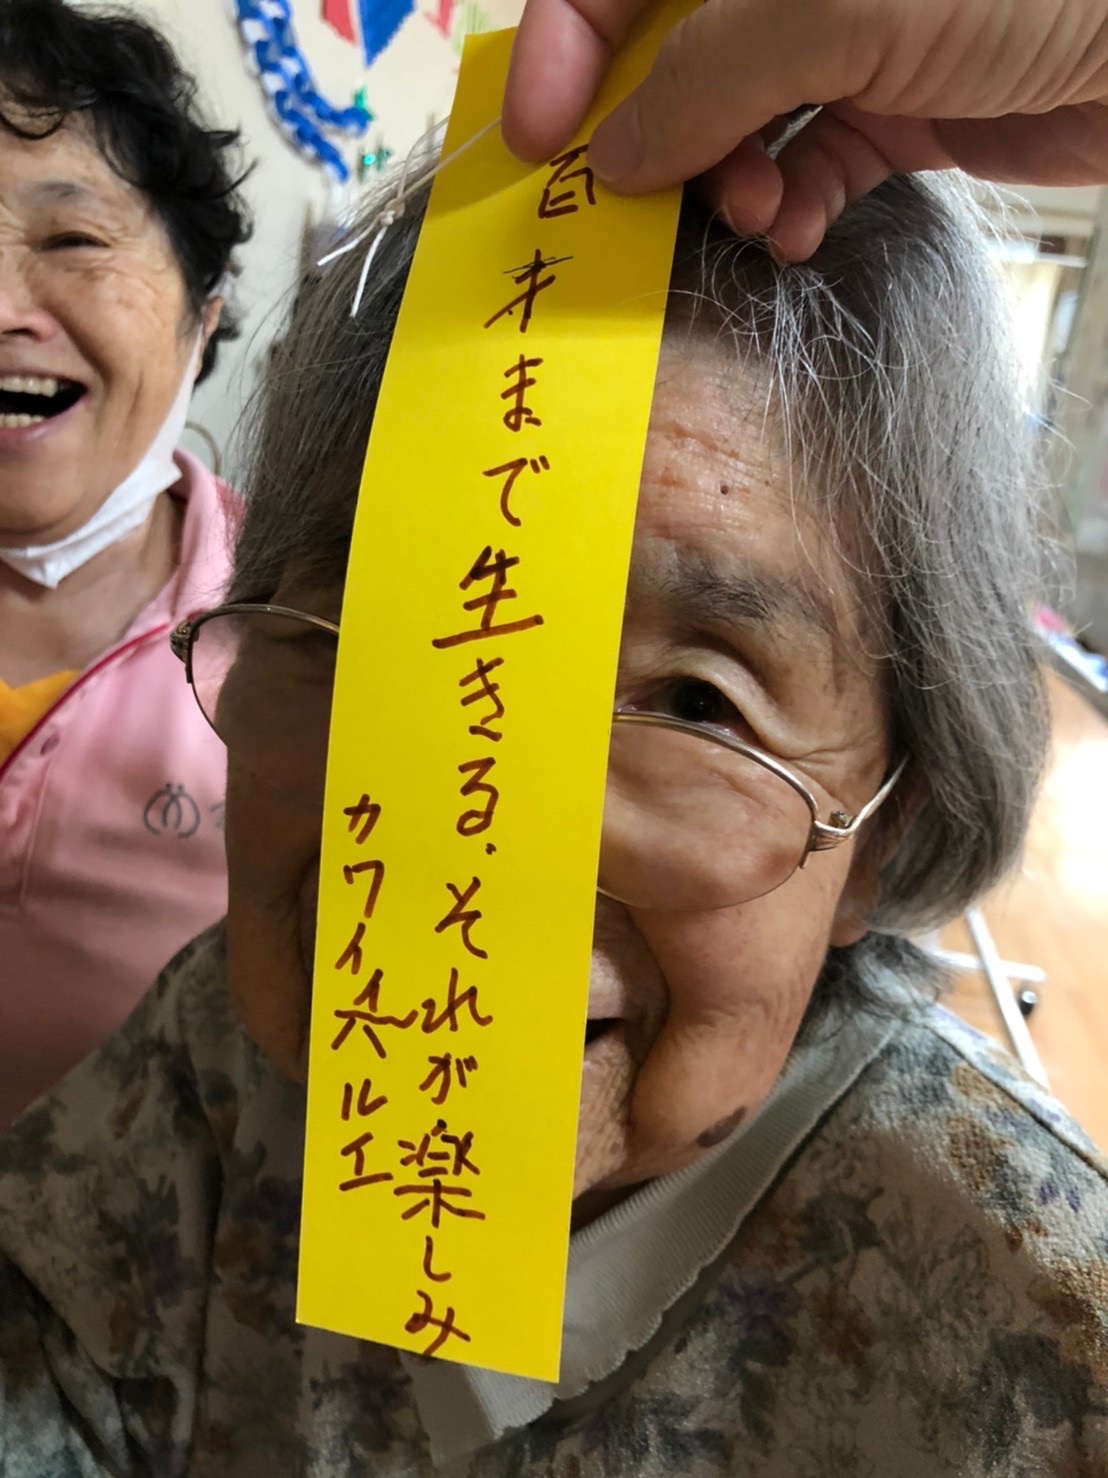 百才まで生きる、それが楽しみ
カワイイハルエ